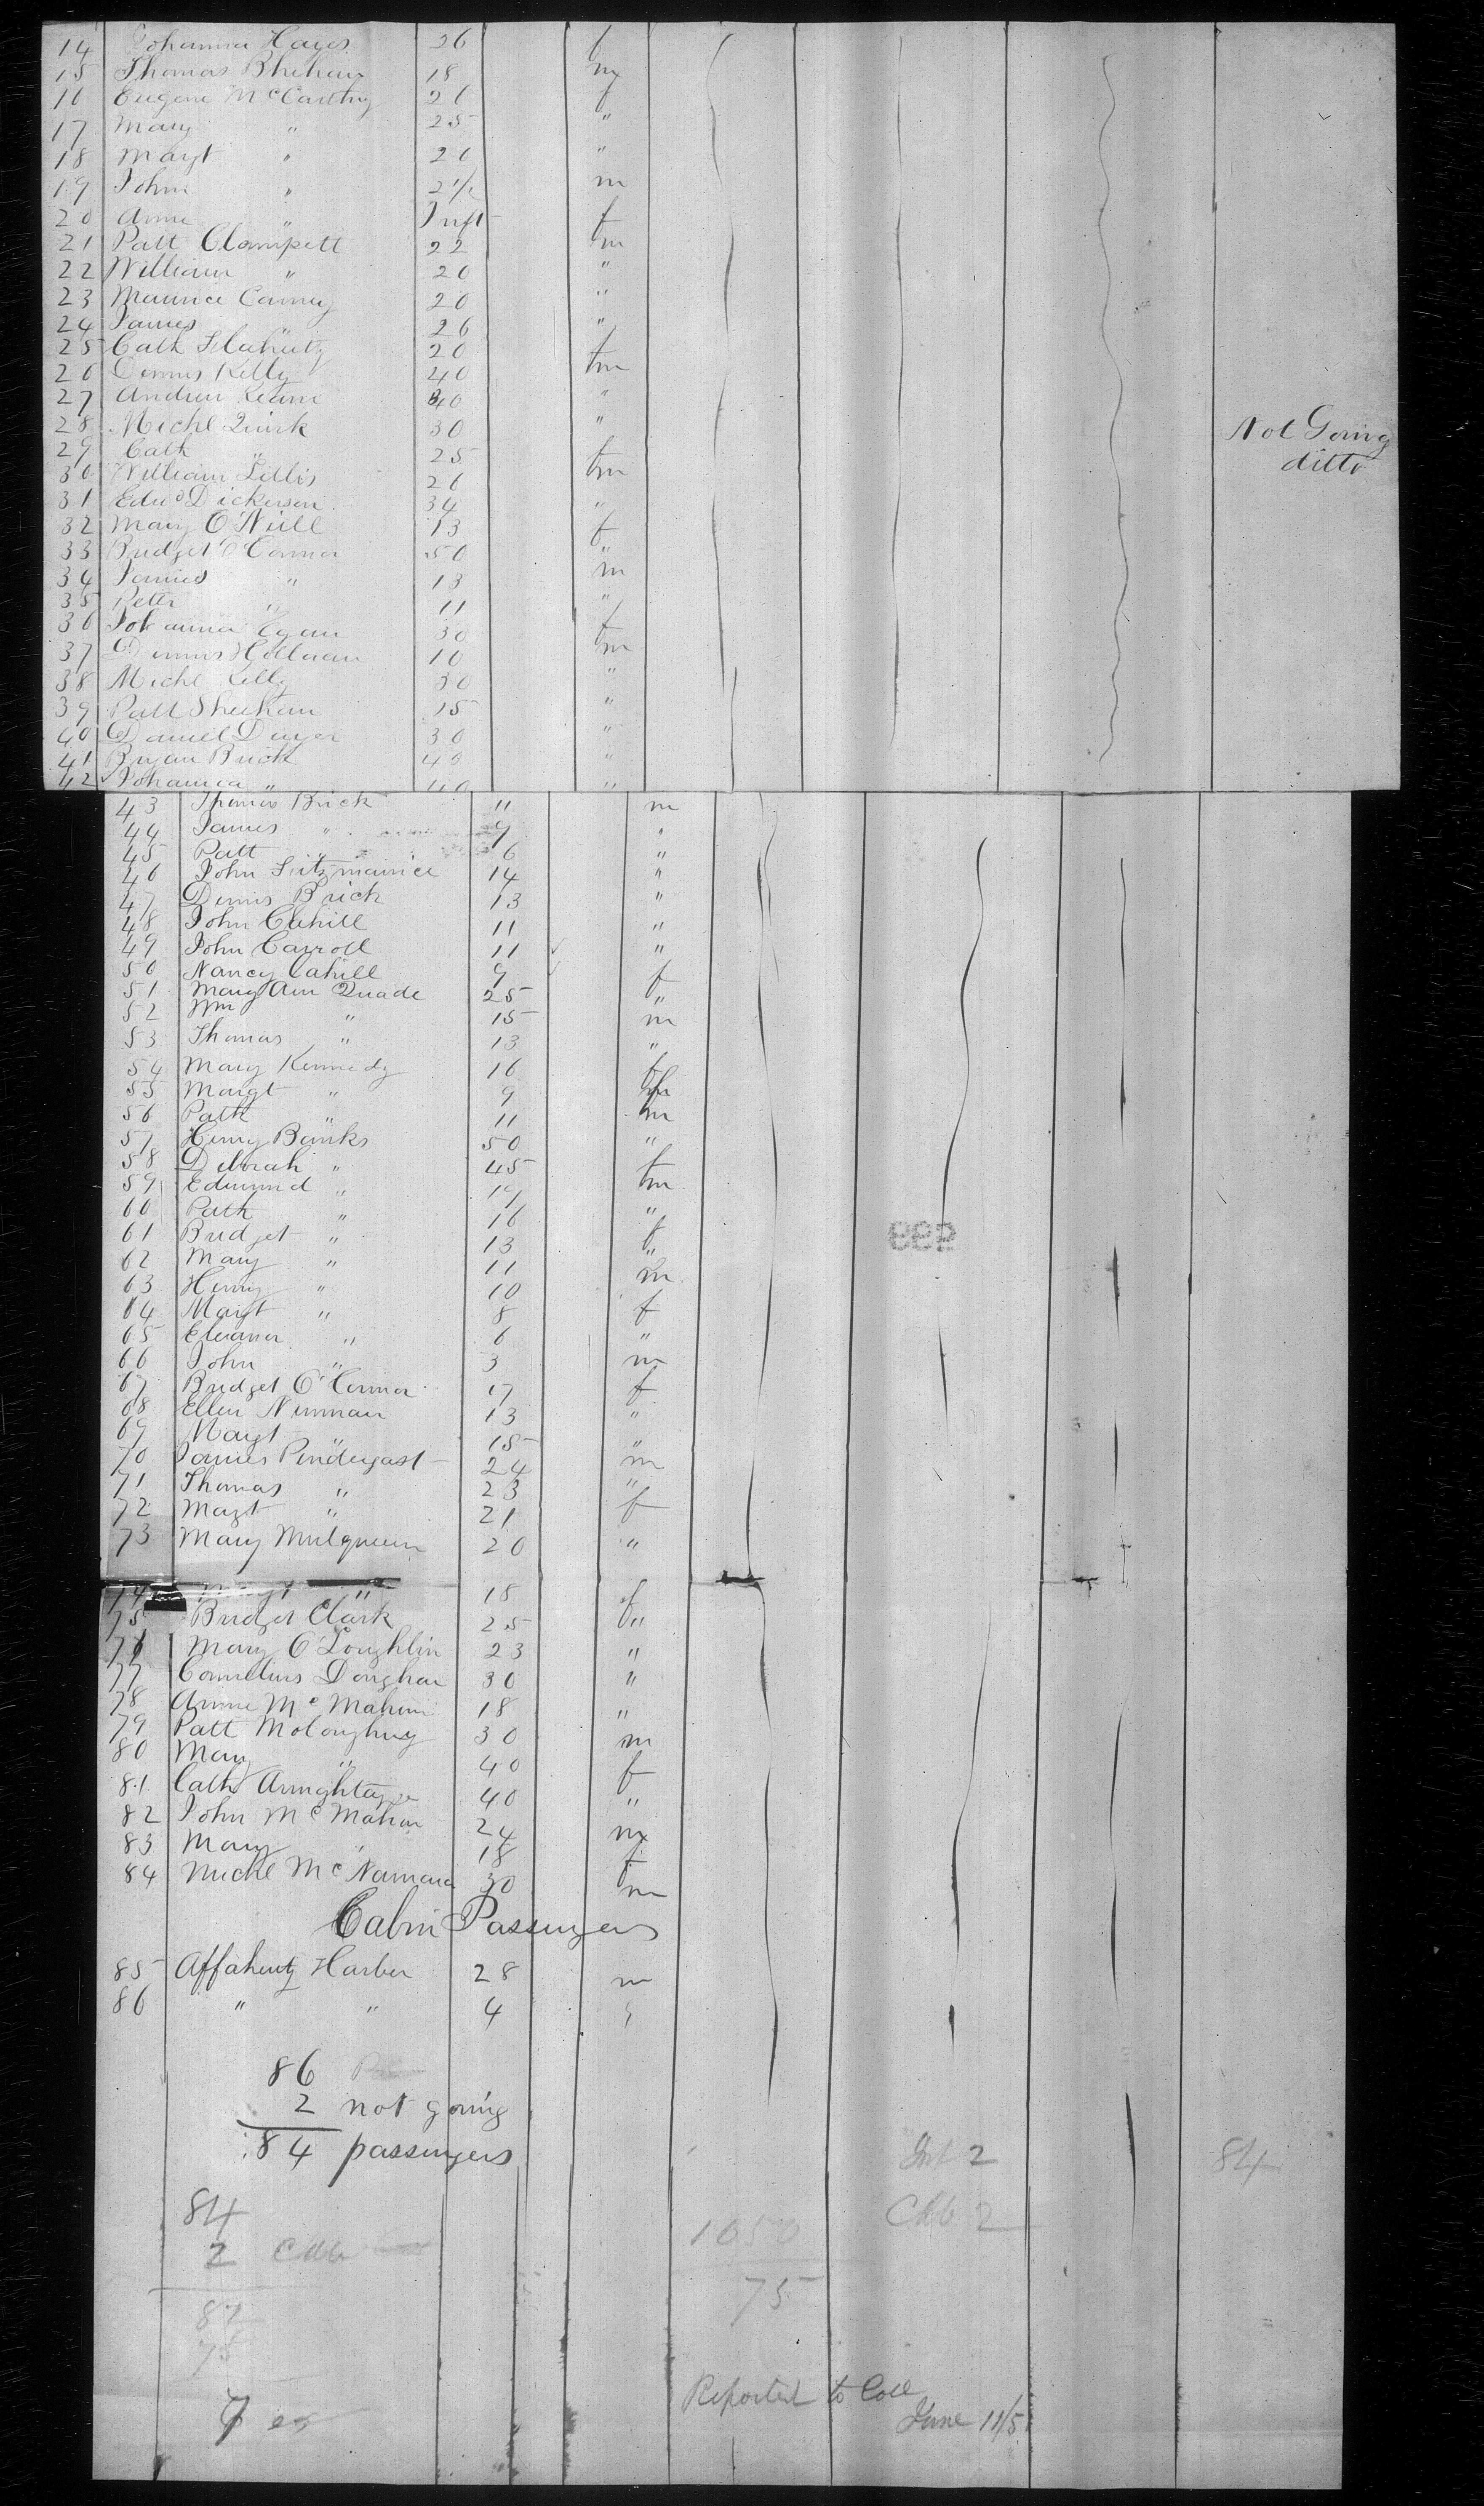 14 Johanna Hayes 26 f
15 Thomas 18 m
16 Eugene McCarthy 26 f
17 Mary " 25 "
18 Margt " 20 "
19 John " 2 1/2 m
20 Anne " Inft f
21 Patt Clampett 22 m
22 William " 20 "
23 Maurice Carney 20 "
24 James " 26 "
25 Cath Flaherty 20 f
26 Dennis Kelly 40 m
27 Andrew Keane 40 "
28 Michl Quirk 30 " Not Going
29 Cath " 25 f ditto
30 William Lillis 26 m
31 Edwd Dickerson 34 "
32 Mary O'Neill 13 f
33 Bridget O'Connor 50 "
34 James " 13 m
35 Peter " 11 "
36 Johanna Egan 30 f
37 Dennis 10 m
38 Michl Kelly 30 "
39 Patt Sheehan 15 "
40 Daniel Dwyer 30 "
41 Bryan Brick 45 "
42 Johanna " 40 "
43 Thomas Brick 11 m
44 James " 9 "
45 Patt " 6 "
46 John Fitzmaurice 14 "
47 Dennis Brick 13 "
48 John Cahill 11 "
49 John Carroll 11 "
50 Nancy Cahill 9 f
51 Mary Ann Quade 25 "
52 Wm " 15 m
53 Thomas " 13 "
54 Mary Kennedy 16 f
55 Margt " 9
56 Patk " 11 m
57 Henry Banks 50 "
58 Deborah " 45 f
59 Edmund " 19 m
60 Patk " 16 "
61 Bridget " 13 f
62 Mary " 11 "
63 Henry " 10 m
64 Margt " 8 f
65 Eleanor " 6 "
66 John " 3 m
67 Bridget O'Connor 17 f
68 Ellen Nunnan 13 "
69 Margt " 15 "
70 James Pendergast 24 m
71 Thomas " 23 "
72 Margt " 21 f
73 Mary Mulqueen 20 "
74 Margt " 18 f
75 Bridget Clark 25 f "
76 Mary O'Loughlin 23 "
77 Cornelius Donghan 30 "
78 Annie McMahon 18 "
79 Patt Moloughney 30 m
80 Mary " 40 f
81 Cath 40 "
82 John McMahon 24 m
83 Mary " 18 f
84 Michl McNamara 30 m
Cabin Passengers
85 Harber 28 m
86 " " 4
999
86
2 not going
84 passengers
Inf 2 84
84 Cab 2
2 Cab 1050
75
82
75
7
Reported to Coll
June 11/5